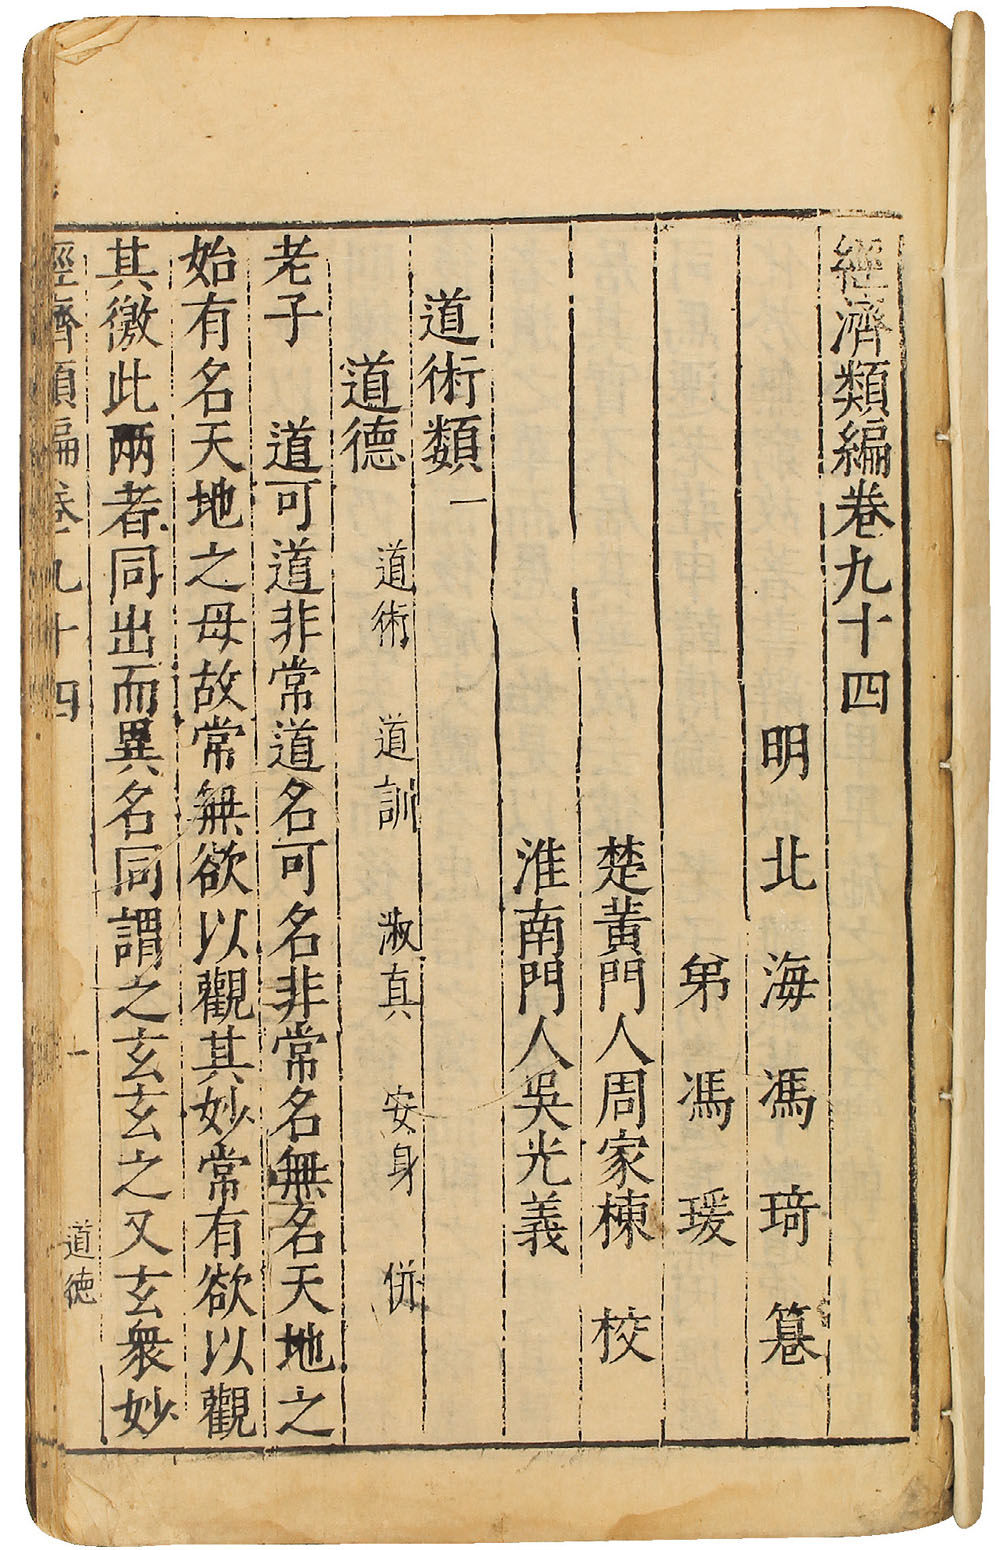 經濟類編卷九十四
明北海馮琦纂
弟馮瑗
楚黃門人周家棟校
淮南門人吳光義
道術類一
道德 道術 道訓 淑真 安身 併
老子 道可道非常道名可名非常名無名天地之
始有名天地之母故常無欲以觀其妙常有欲以觀
其徼此兩者同出而異名同謂之玄玄之又玄衆妙
經濟類編卷九十四 道德 一